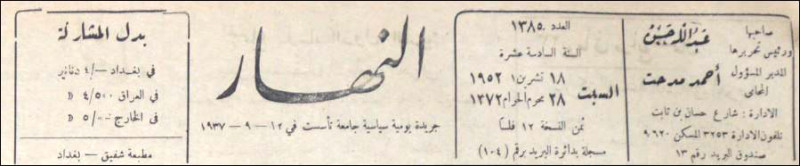 صاحبها
ورئيس تحريرها
عبد الله حسن
المدير المسؤول
المحامي
أحمد مدحت
الادارة : شارع حسان بن ثابت
تلفون الادارة ٣٢٥٣ المسكن ٩٦٢٠
صندوق البريد رقم ١٣
العدد ١٣٨٥٠
السنة السادسة عشرة
السبت
١٨ تشرين١ ١٩٥٢
٢٨ محرم الحرام ١٣٧٢
ثمن النسخة ١٢ فلسا
مسجلة بدائرة البريد برقم (١٠٤)
النهار
جريدة يومية سياسية جامعة تأسست في ١٢ - ٩ - ١٩٣٧
بدل المشاركة
في بغداد ٤/٠٠٠ دنانير
في العراق ٤/٥٠٠ D
في الخارج ٥/٠٠٠ D
مطبعة شفيق - بغداد